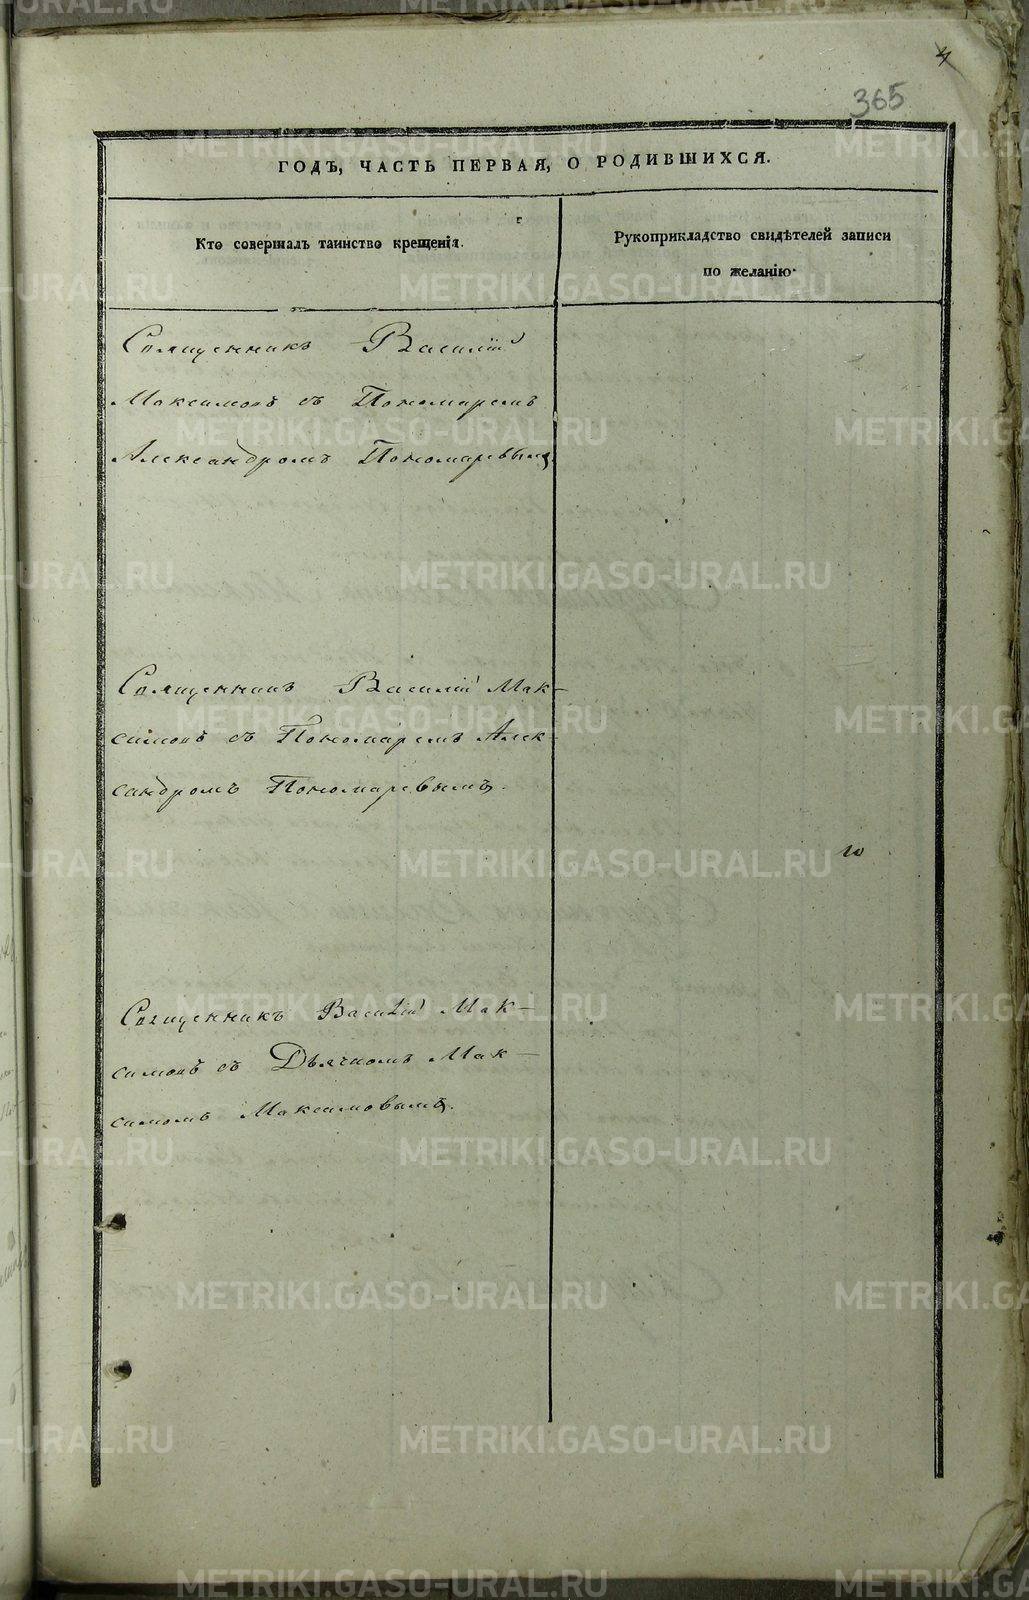 4
365
ГОДЪ, ЧАСТЬ ПЕРВАЯ, О РОДИВШИХСЯ.
Кто совершалъ таинство крещенія.
Рукоприкладство свидѣтелей записи
по желанію.
Священникъ Василій
Максимовъ съ Пономаремъ
Александромъ Пономаревымъ.
Священникъ Василій Мак-
симовъ съ Пономаремъ Алек-
сандромъ Пономаревымъ.
Священникъ Василій Мак-
симовъ съ Дьячкомъ Мак-
симомъ Максимовымъ.
METRIKI.GASO-URAL.RU